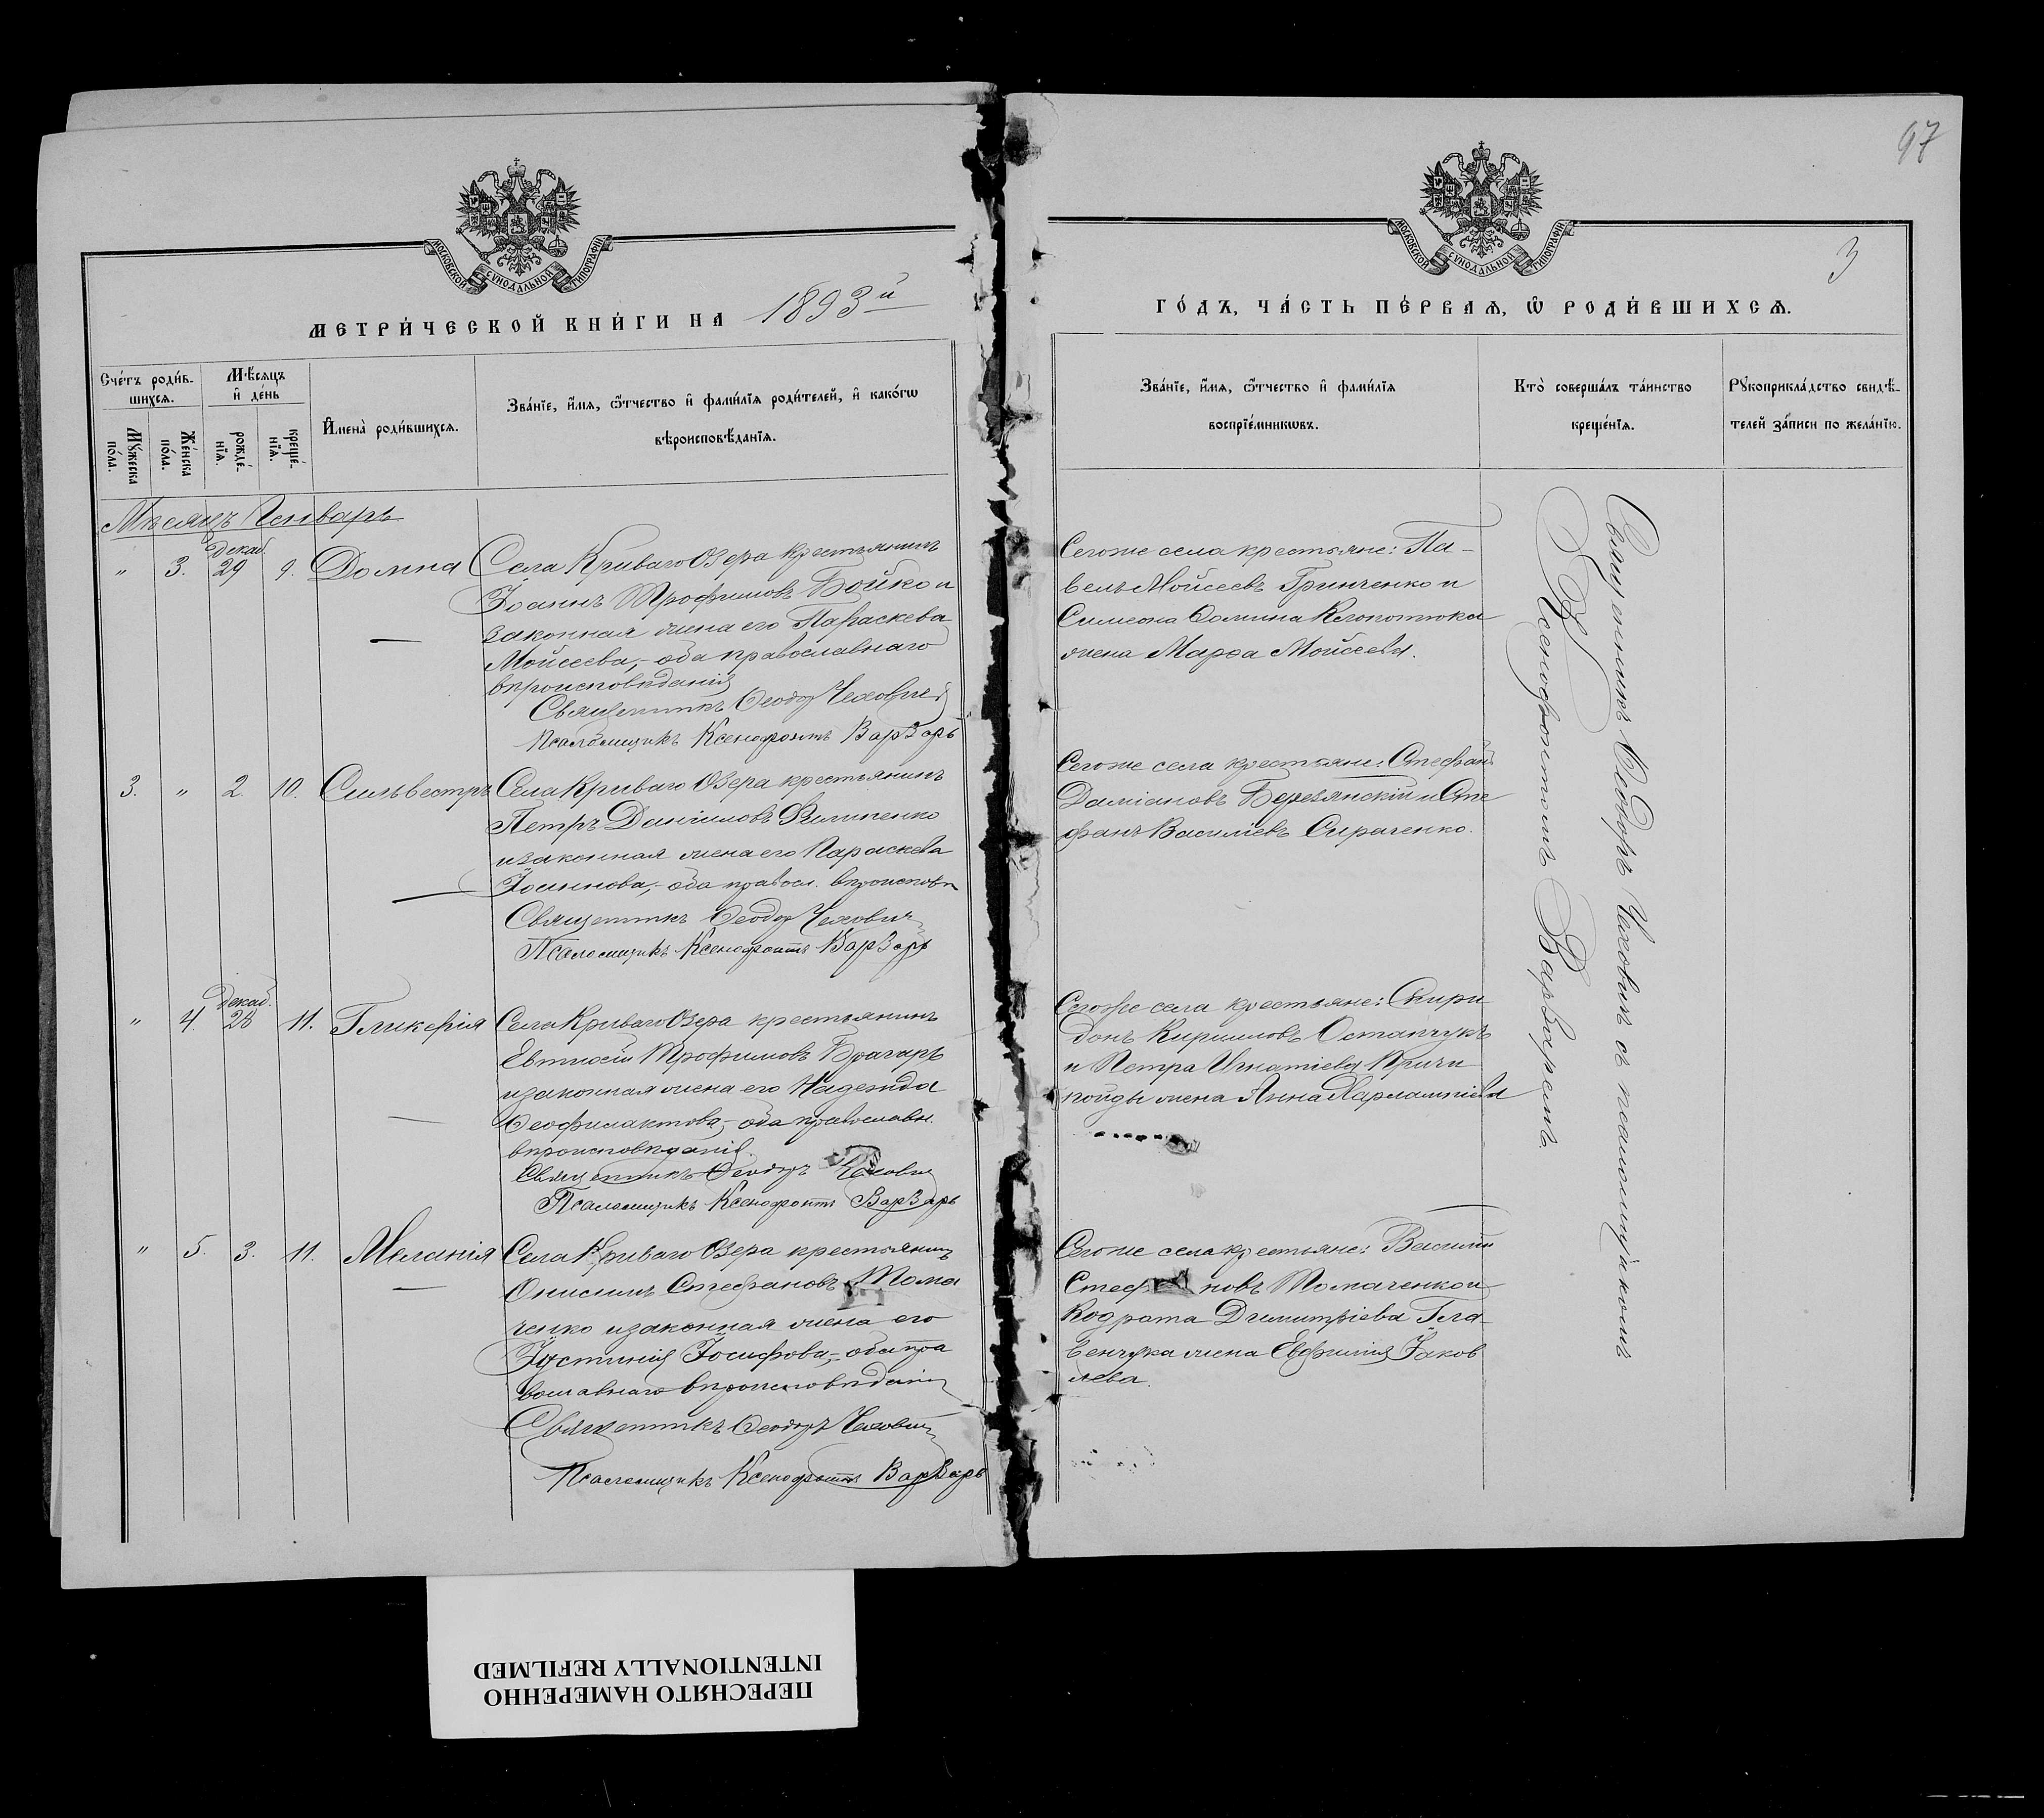 97
3
МОСКОВСКОЙ СѴНОДАЛЬНОЙ ТИПОГРАФІИ
МОСКОВСКОЙ СѴНОДАЛЬНОЙ ТИПОГРАФІИ
МЕТРИ́ЧЕСКОЙ КНИ́ГИ НА 1893й
ГО́ДЪ, ЧА́СТЬ ПЕ́РВАЯ, Ѡ РОДИ́ВШИХСЯ.
Сче́тъ роди́в-
шихся.
Мѣ́сяцъ
и де́нь
Мꙋ́жеска
по́ла.
Же́нска
по́ла.
рожде́-
нїя.
креще́-
нїя.
И҆мена̀ роди́вшихся.
Зва́нїе, и҆́мя, ѻ҆́тчество и҆ фами́лїя роди́телей, и҆ како́гѡ
вѣроисповѣ́данїя.
Зва́нїе, и҆́мя, ѻ҆́тчество и҆ фами́лїя
воспрїе́мникѡвъ.
Кто̀ соверша́лъ та́инство
креще́нїя.
Рꙋкоприкла́дство свидѣ́-
телей за́писи по жела́нїю.
Мѣсяцъ Генварь
" 3. Декаб. 29 9. Домна
Села Криваго Озера крестьянинъ
Іоаннъ Трофимовъ Бойко и
законная жена его Параскева
Мойсеева, – оба православнаго
вѣроисповѣданія
Священникъ Ѳеодоръ Чехович
Псаломщикъ Ксенофонтъ Варзарь
Сегоже села крестьяне: Па-
велъ Мойсеевъ Гринченко и
Симеона Ѳомина Клопотюка
жена Марѳа Мойсеева.
3. " 2. 10. Сильвестръ
Села Криваго Озера крестьянинъ
Петръ Даніиловъ Филипенко
и законная жена его Параскева
Іоаннова, – оба правосл. вѣроисповѣ
Священникъ Ѳеодоръ Чехович
Псаломщикъ Ксенофонтъ Варзарь
Сегоже села крестьяне: Стефанъ
Даміановъ Березянскій и Сте
фанъ Василіевъ Сираченко.
" 4. Декаб. 28 11. Гликерія
Села Криваго Озера крестьянинъ
Евтихій Трофимовъ Брагарь
и законная жена его Надежда
Ѳеофилактова, – оба православн.
вѣроисповѣданія.
Священникъ Ѳеодоръ Чехович
Псаломщикъ Ксенофонтъ Варзарь
Сегоже села крестьяне: Спири
донъ Кирилловъ Остапчукъ
и Петра Игнатіева
жена Анна Харлампіева
" 5. 3. 11. Меланія
Села Криваго Озера крестьянинъ
Онисимъ Стефановъ Тома
ченко и законная жена его
Іустинія Іосифова, – оба пра
вославнаго вѣроисповѣданія
Священникъ Ѳеодоръ Чехович
Псаломщикъ Ксенофонтъ Варзарь
Сегоже села крестьяне: Василій
Стефановъ Томаченко и
Кодрата Димитріева Гла-
венчука жена Евфимія Іаков
лева.
Священникъ Ѳеодоръ Чеховичъ съ псаломщикомъ
Ксенофонтомъ Варзаремъ
ПЕРЕСНЯТО НАМЕРЕННО
INTENTIONALLY REFILMED